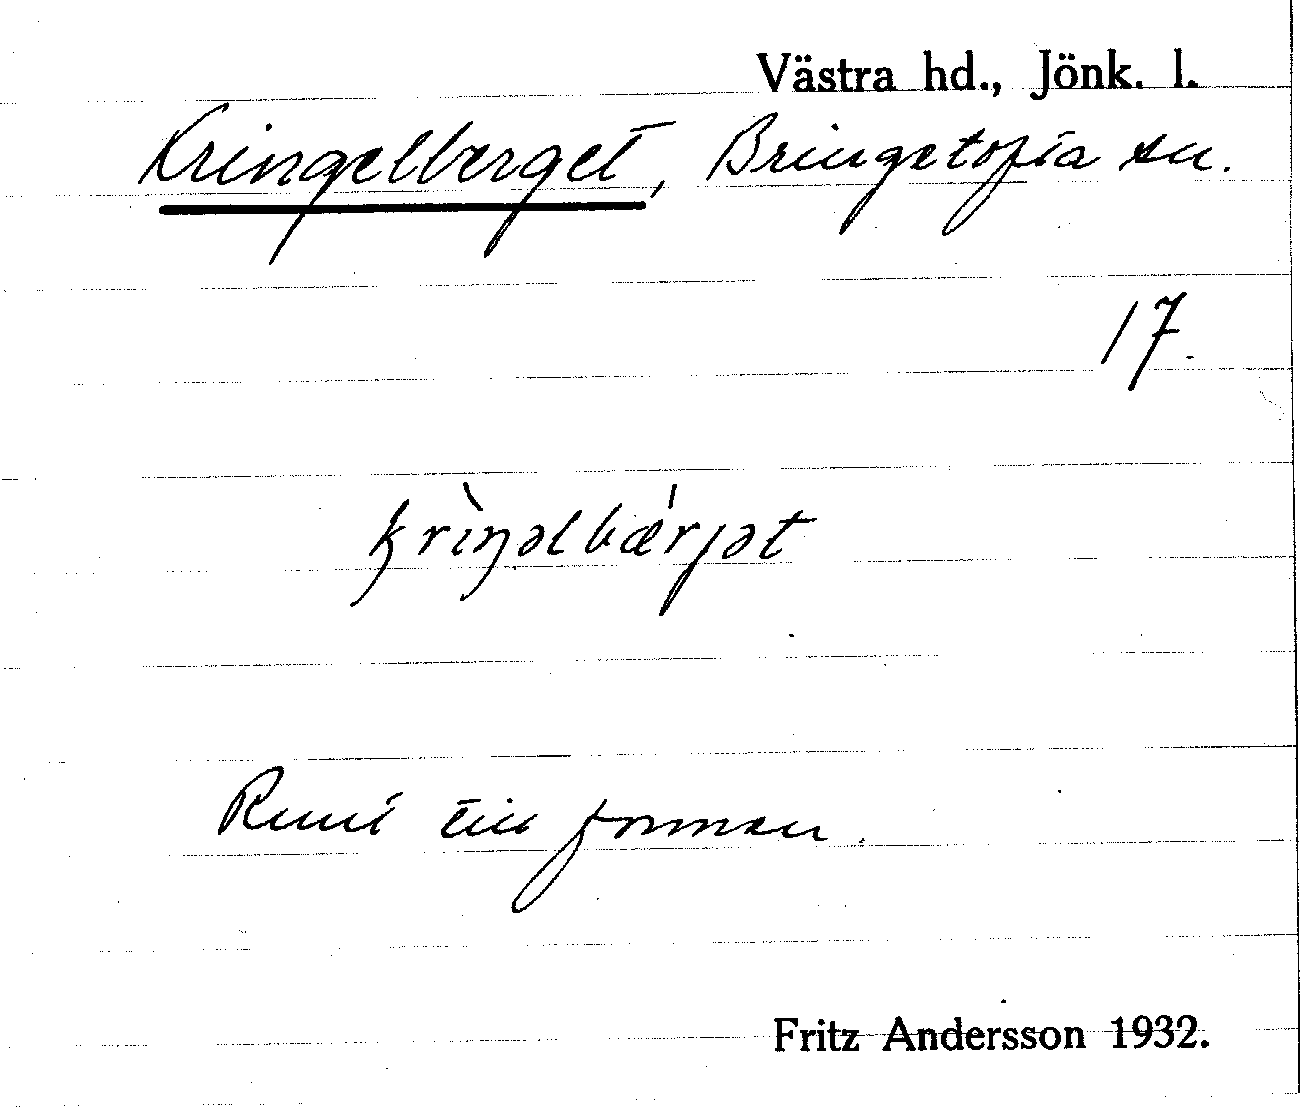 Västra hd., Jönk. l.
Kringelberget, Bringetofta sn.
17.
krìŋəlbǽrjət
Runt till formen.
Fritz Andersson 1932.